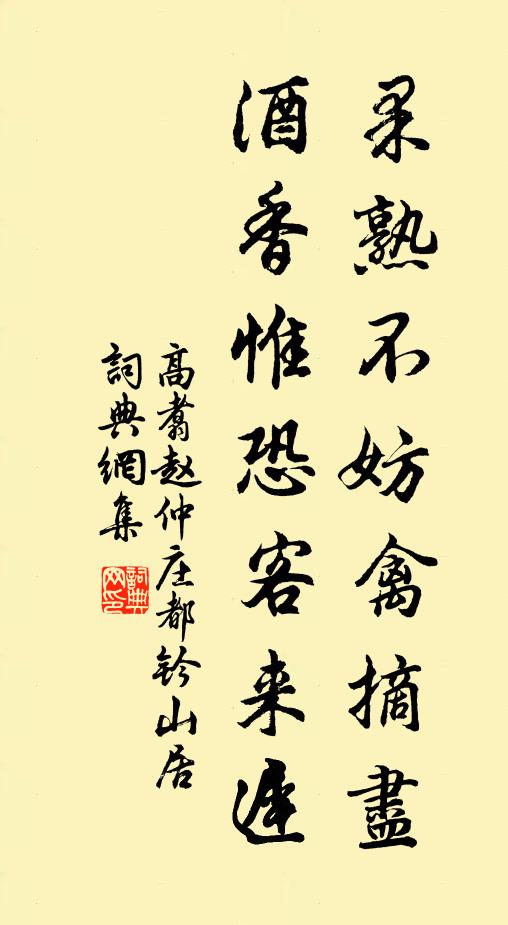 果熟不妨禽摘盡
酒香惟恐客来遲
高翥赵仲庄都钤山居
詞典網集
詞典網印